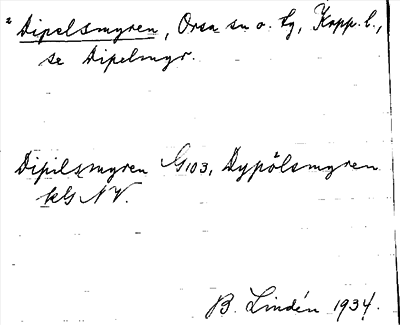 " Dipelsmyren, Orsa sn o. tg, Kopp. l.,
se Dipelmyr.
Dipilsmyren G103, Dypölsmyren
kG NV.
B. Lindén 1934.